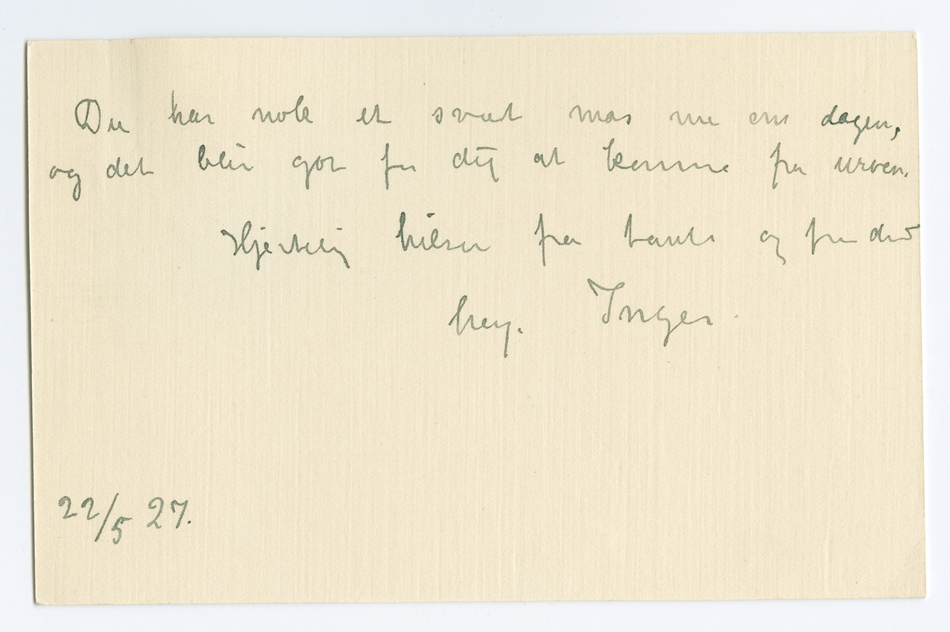 Du har nok et svært mas nu om dagen,
og det blir godt for dig at komme fra urven.
Hjertelig hilsen fra tante og fra din
heng. Inger.
22/5 27.